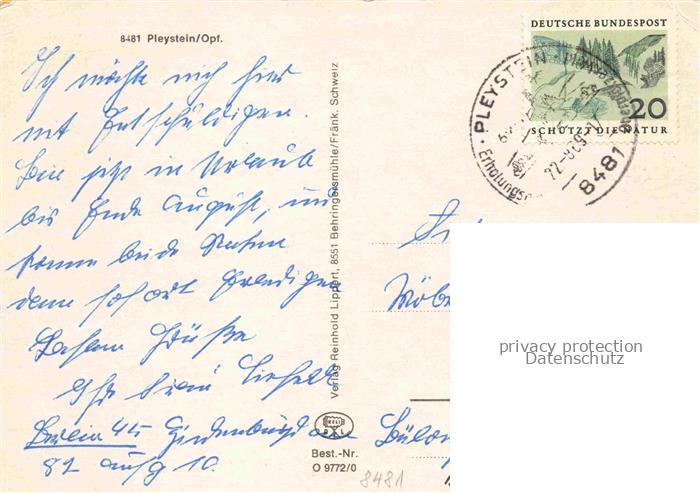 8481 Pleystein/Opf.
Ich möchte mich hier
mit Entschuldigen.
Bin jetzt in Urlaub
bis Ende August, und
komme beide Raten
dann sofort Erledigen
Grüße
Ihr
Berlin 45
82 aufg 10.
Verlag Reinhold Lippert, 8551 Behringersmühle/Fränk. Schweiz
RELI
Best.-Nr.
O 9772/0
8481
DEUTSCHE BUNDESPOST
20
SCHÜTZT DIE NATUR
PLEYSTEIN
8481
Möbe
privacy protection
Datenschutz